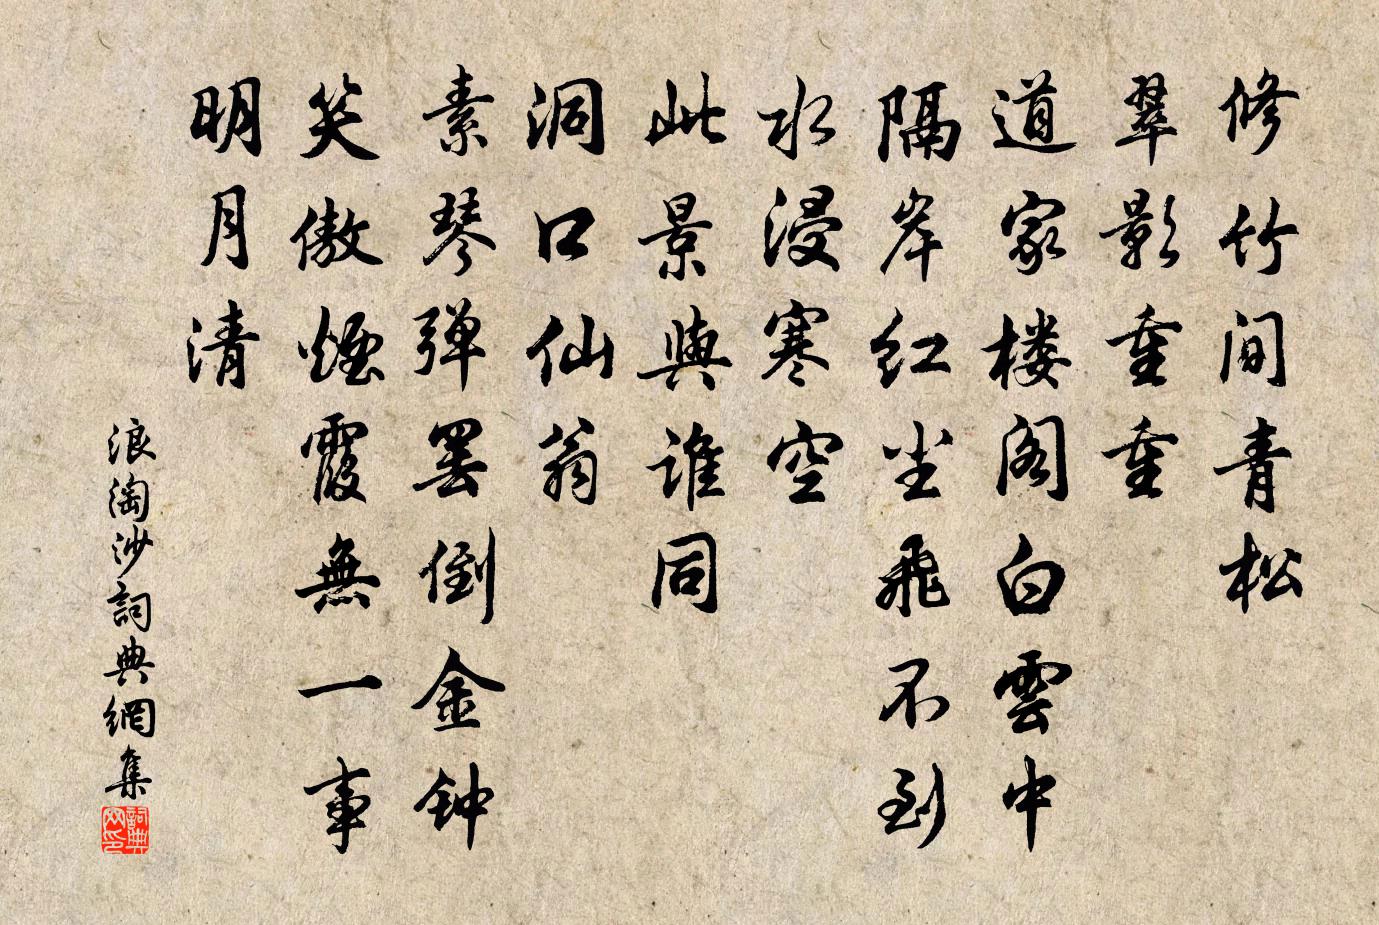 修竹间青松
翠影重重
道家楼阁白雲中
隔岸红尘飛不到
水浸寒空
此景與谁同
洞口仙翁
素琴弹罢倒金钟
笑傲煙霞無一事
明月清
浪淘沙詞典網集
詞典网印